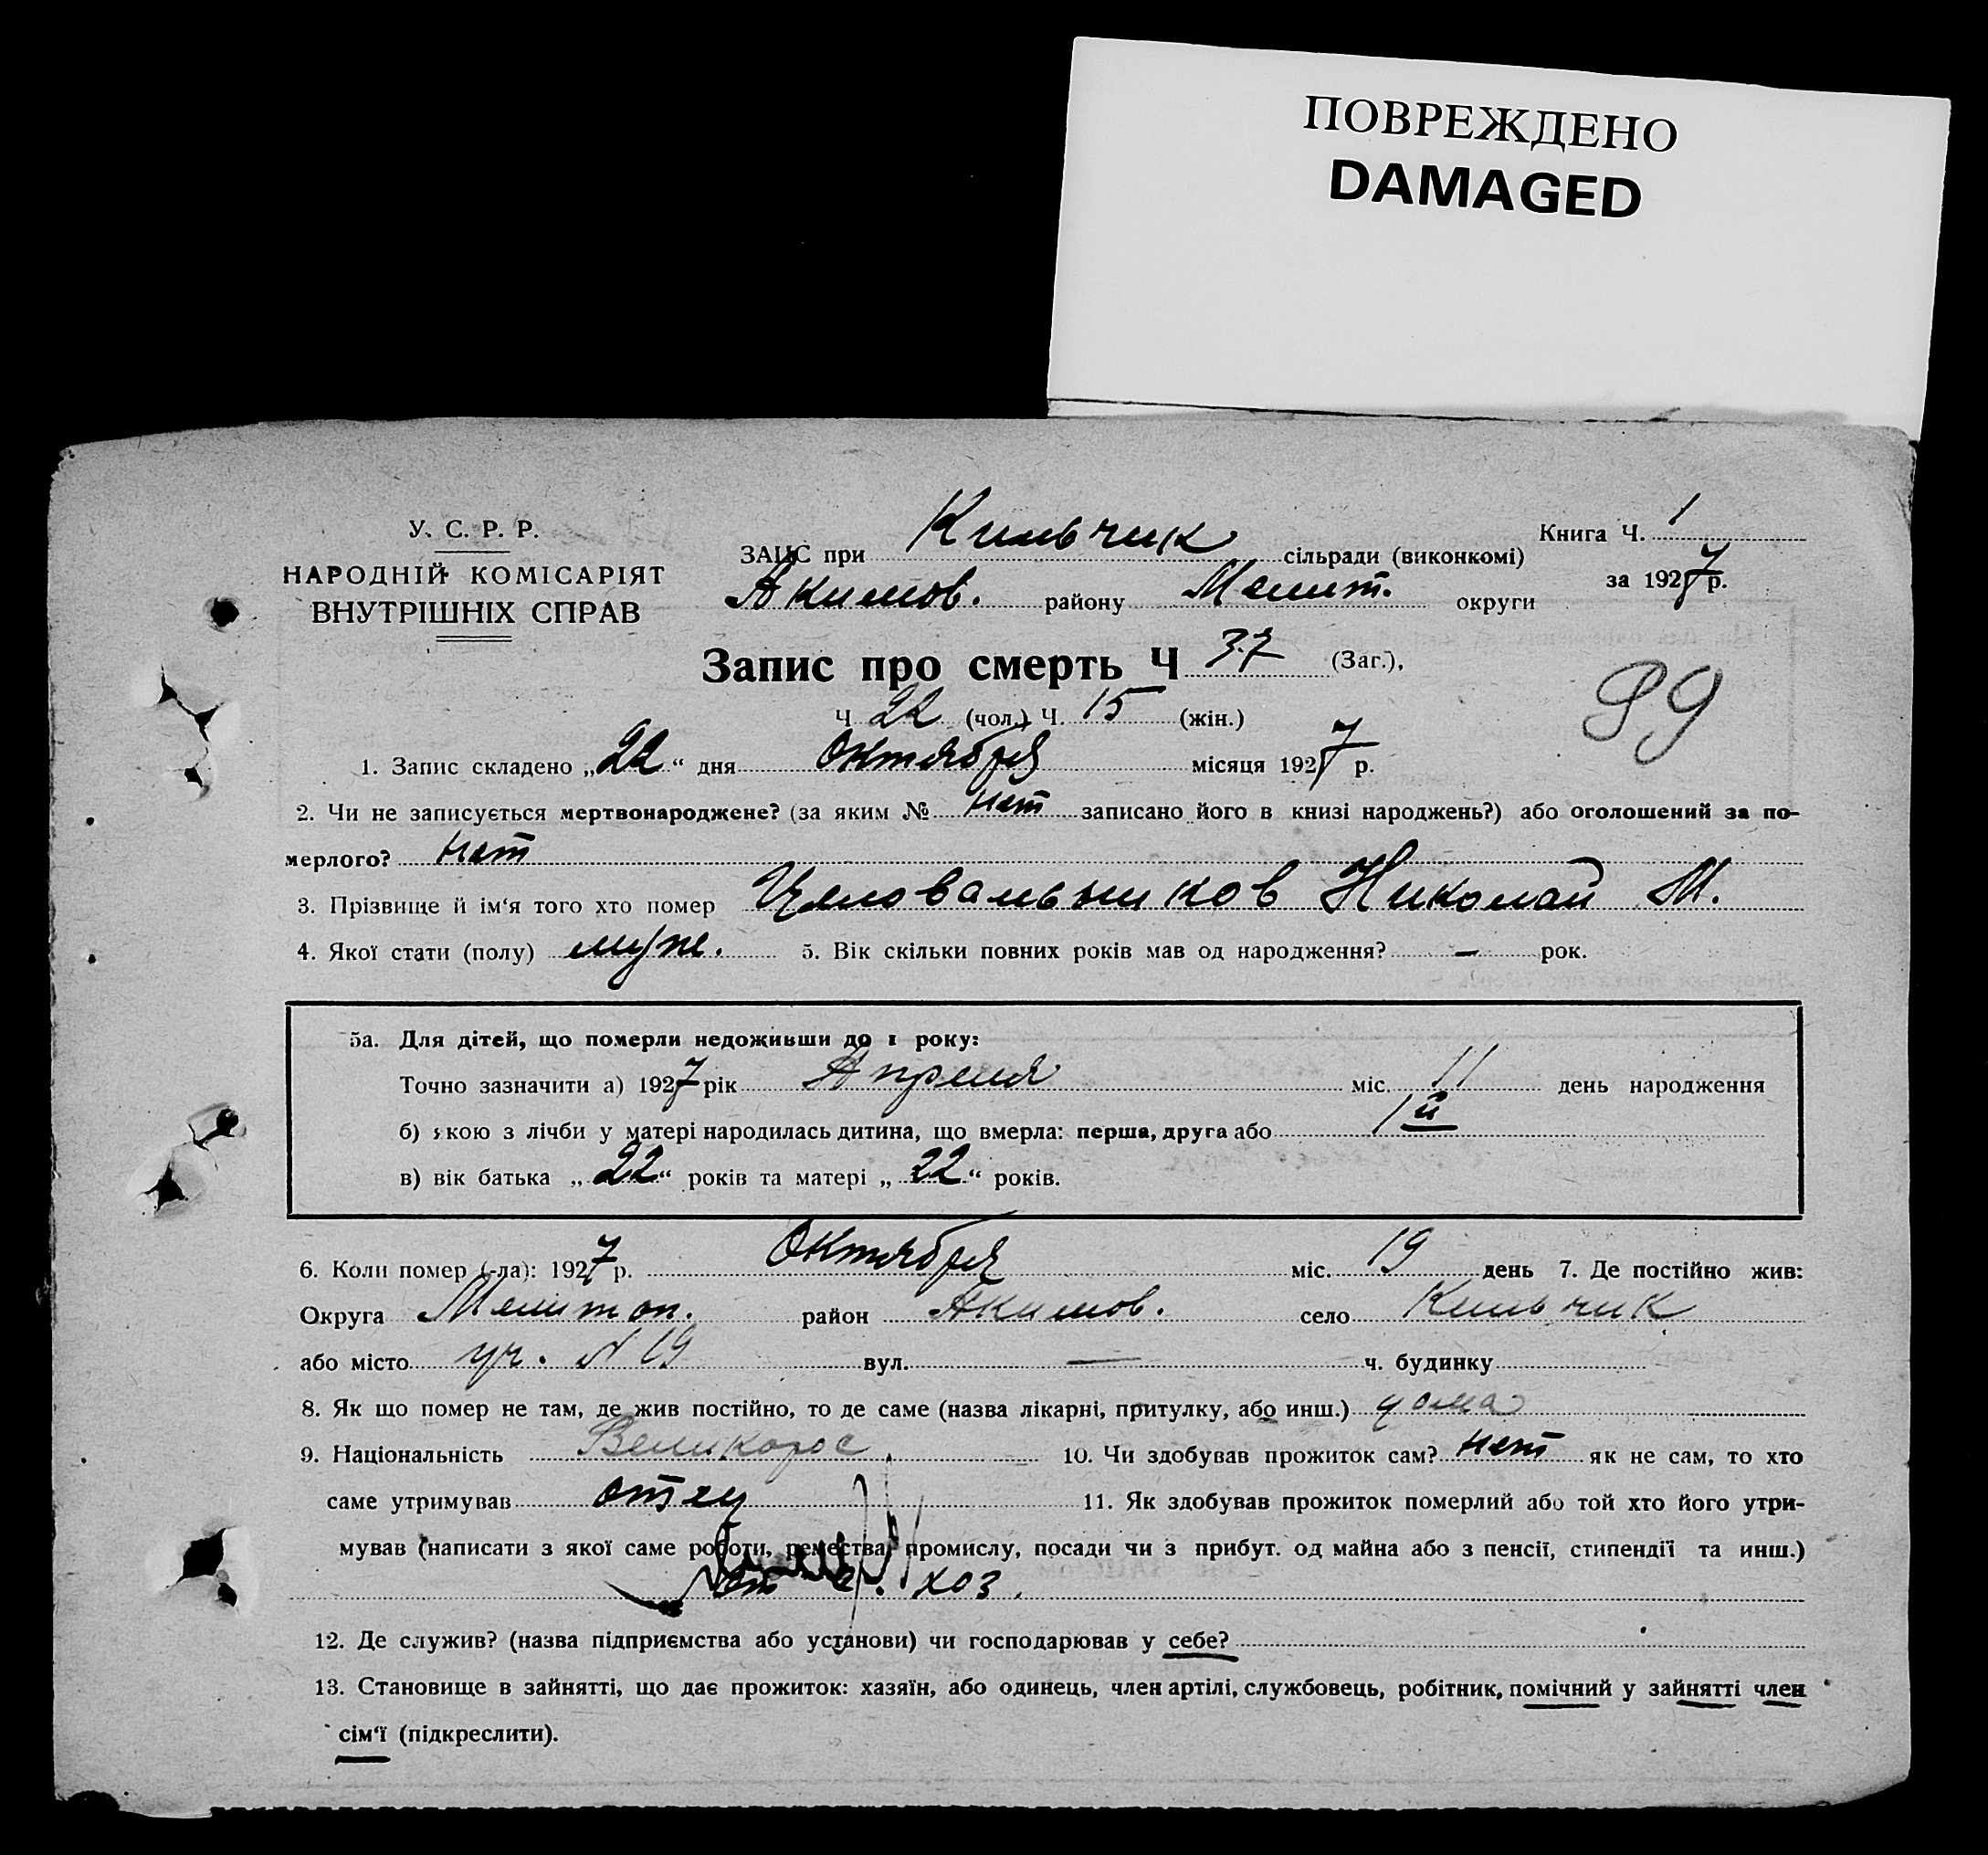 ПОВРЕЖДЕНО
DAMAGED
У. С. Р. Р.
НАРОДНІЙ КОМІСАРІЯТ
ВНУТРІШНІХ СПРАВ
ЗАГС при Кильчик сільради (виконкомі)
Акимов. району Мелит. округи
Книга Ч. 1
за 1927 р.
Запис про смерть Ч 37 (Заг.),
Ч 22 (чол.) Ч. 15 (жін.)
89
1. Запис складено „22“ дня Октября місяця 1927 р.
2. Чи не записується мертвонароджене? (за яким № нет записано його в книзі народжень?) або оголошений за по-
мерлого? нет
3. Прізвище й ім'я того хто помер Целовальников Николай М.
4. Якої стати (полу) муж. 5. Вік скільки повних років мав од народження? — рок.
5а. Для дітей, що померли недоживши до 1 року:
Точно зазначити а) 1927 рік Апреля міс. 11 день народження
б) якою з лічби у матері народилась дитина, що вмерла: перша, друга або 1й
в) вік батька „22“ років та матері „22“ років.
6. Коли помер (-ла): 1927 р. Октября міс. 19 день 7. Де постійно жив:
Округа Мелитоп. район Акимов. село Кильчик
або місто уч. N 19 вул. — ч. будинку
8. Як що помер не там, де жив постійно, то де саме (назва лікарні, притулку, або инш.) дома
9. Національність Великорос 10. Чи здобував прожиток сам? нет як не сам, то хто
саме утримував отец 11. Як здобував прожиток померлий або той хто його утри-
мував (написати з якої саме роботи, ремества, промислу, посади чи з прибут. од майна або з пенсії, стипендії та инш.)
от с. хоз.
12. Де служив? (назва підприємства або установи) чи господарював у себе?
13. Становище в зайнятті, що дає прожиток: хазяїн, або одинець, член артілі, службовець, робітник, помічний у зайнятті член
сім'ї (підкреслити).